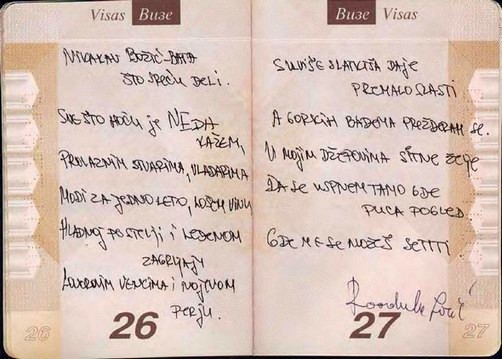 Visas Визе
NIKAKAV BOŽIĆ-BATA
ŠTO SREĆU DELI.
SVE ŠTO HOĆU je NEDA
KAŽEM,
PROLAZNIM STVARIMA, VLADARIMA
MODI ZA JEDNO LETO, LOŠEM VINU
HLADNOJ POSTELJI i LEDENOM
ZAGRLJAJU
LOVORNIM VENCIMA i NOJEVOM
PERJU.
26
26
Визе Visas
SUVIŠE SLATKIŠA DAJE
PREMALO SLASTI
A GORKIH BADEMA PREŽDERAH SE.
U MOJIM DŽEPOVINA SITNE ŽELJE
DA SE USPNEM TAMO GDE
PUCA POGLED
GDE ME SE MOŽEŠ SETITI
27
27